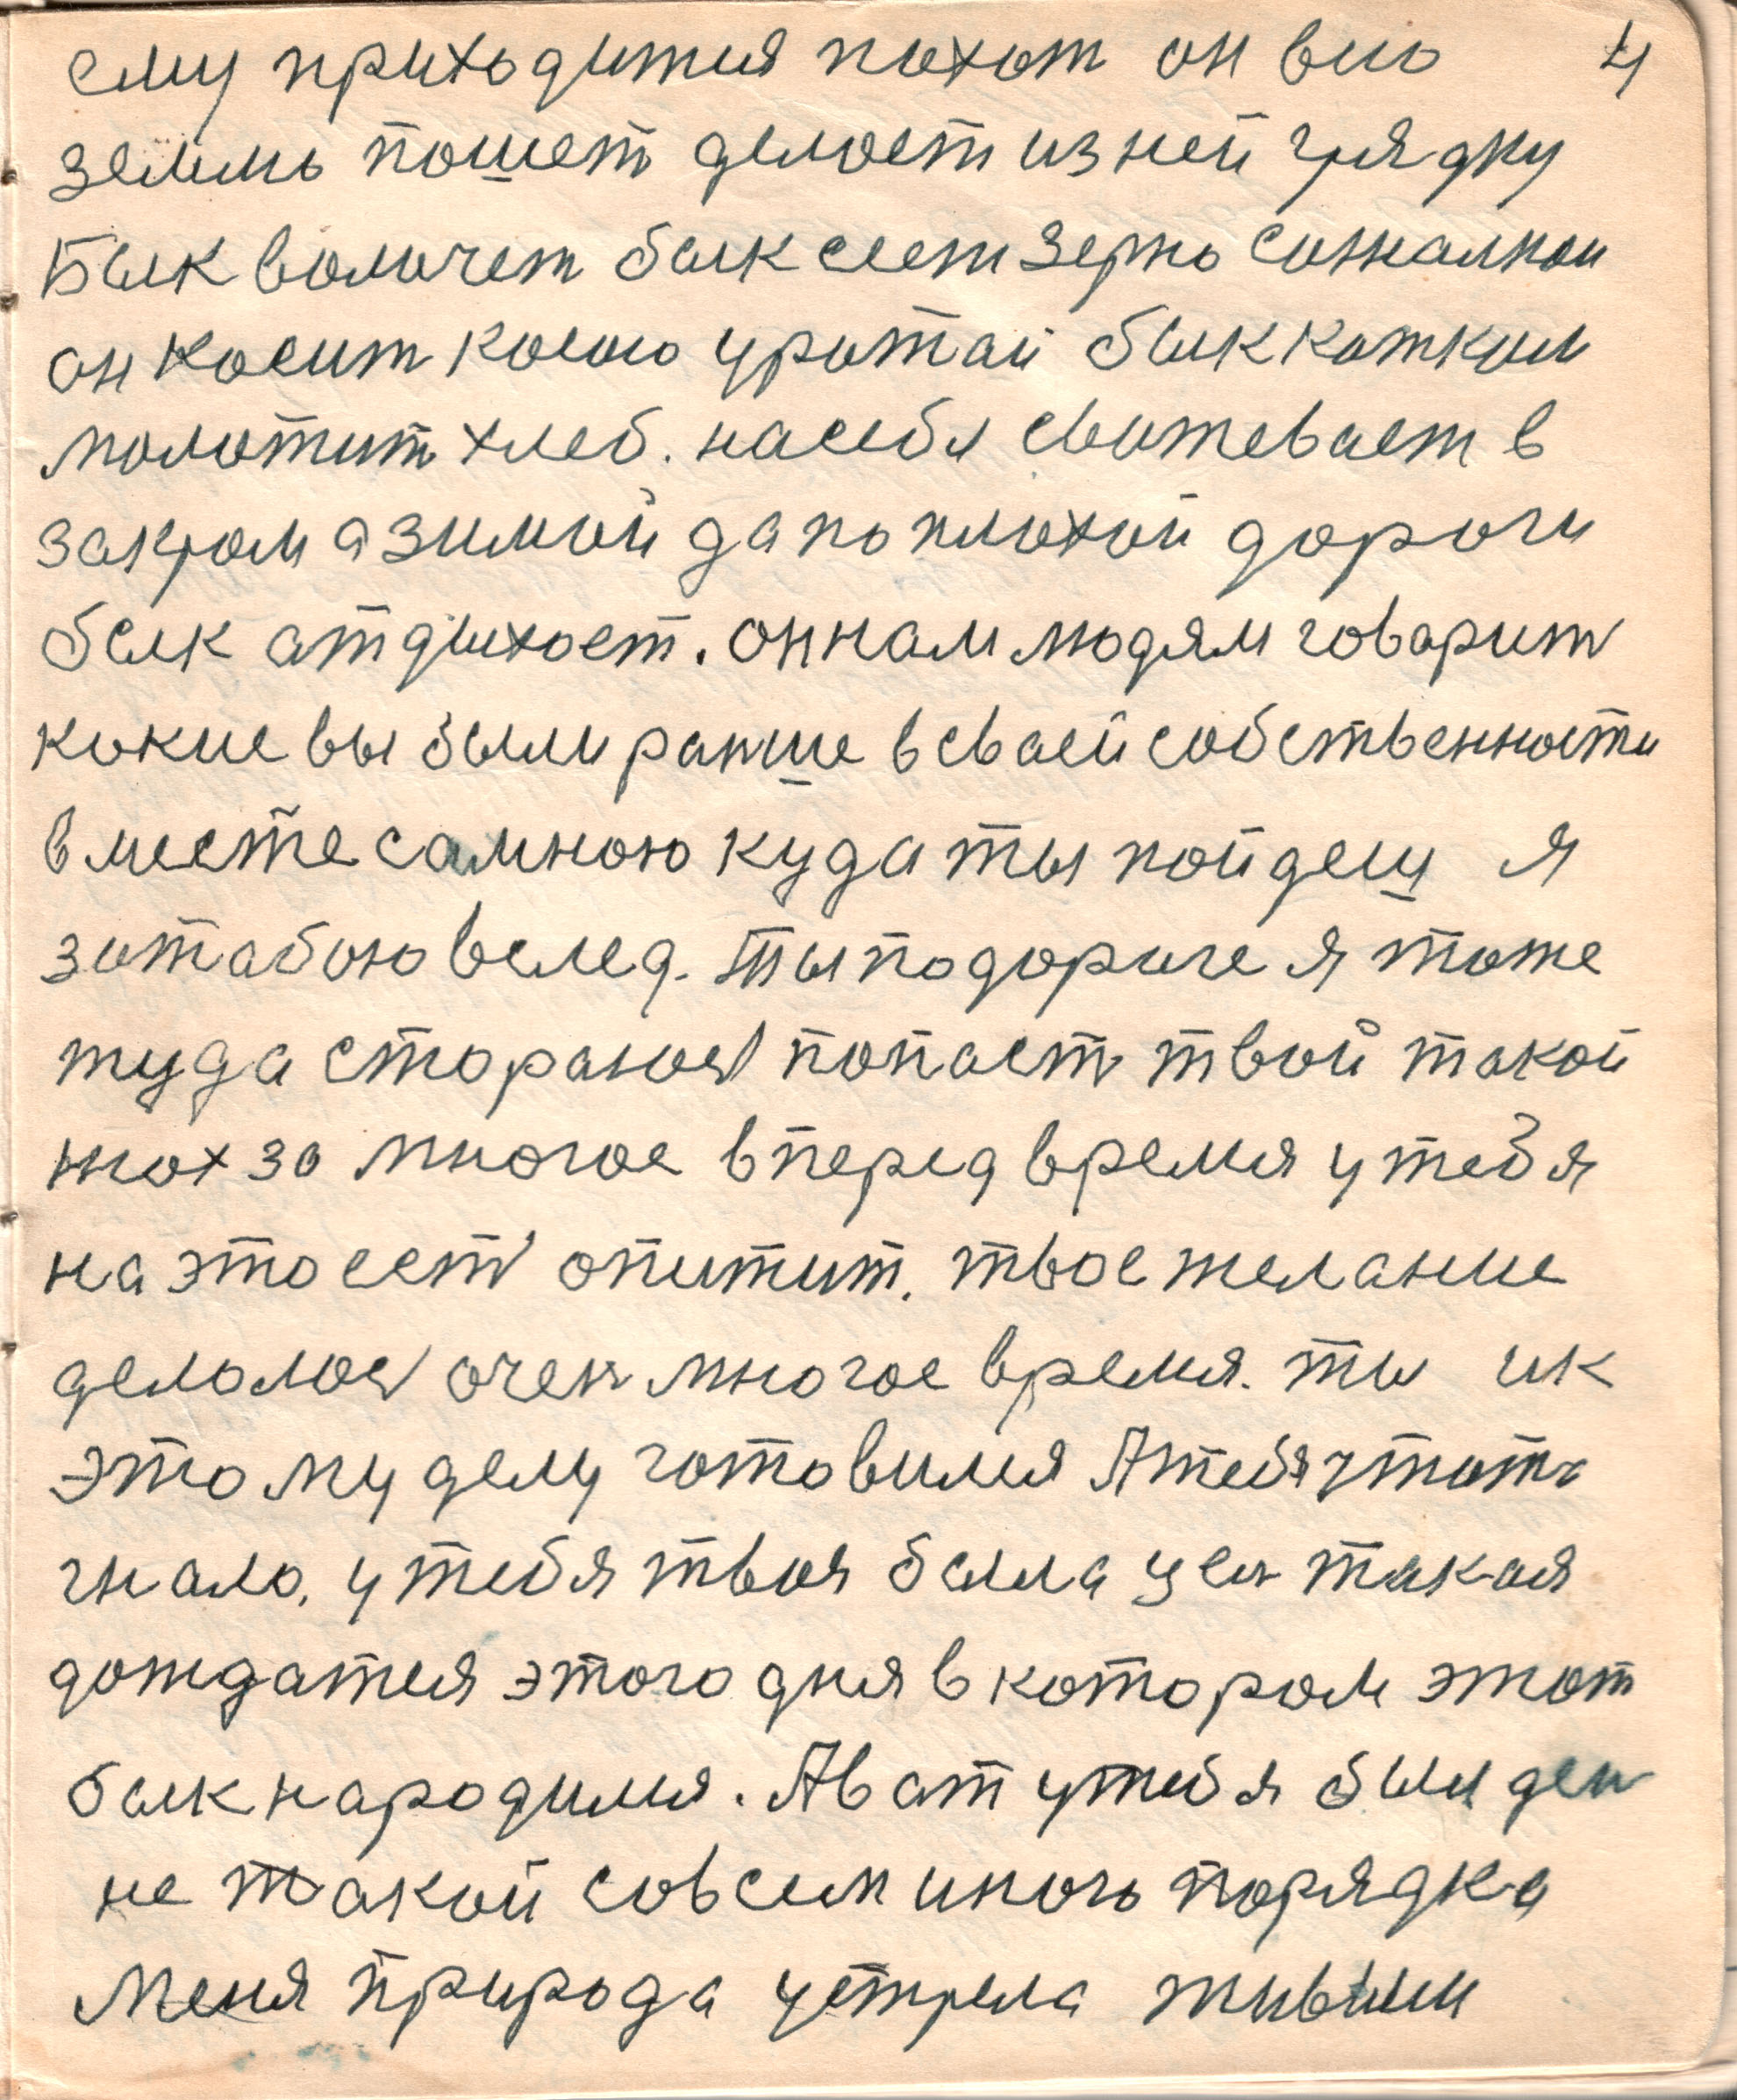 ему приходится пахат он всю 4
землю пошет делает из ней грядку
Бык волочет бык сеет зерно сожалкой
он косит косою урожай бык катком
молотит хлеб. на себя сватевает в
закром а зимой да по плохой дороги
бык атдыхает. он нам людям говарит
какие вы были ранше в сваей собственности
вместе самною куда ты пойдеш я
за табою вслед. ты по дороге я тоже
туда старался попаст твой такой
 за многое вперед время у тебя
на это ест опитит. твое желание
делолся очен многое время. ты и к
этому делу готовился А тебя чтото
гнало. у тебя твоя была цел такая
дождатся этого дня в котором этот
бык народился. А ват у тебя был ден
не такой совсем иного порядка
меня природа устрела живым